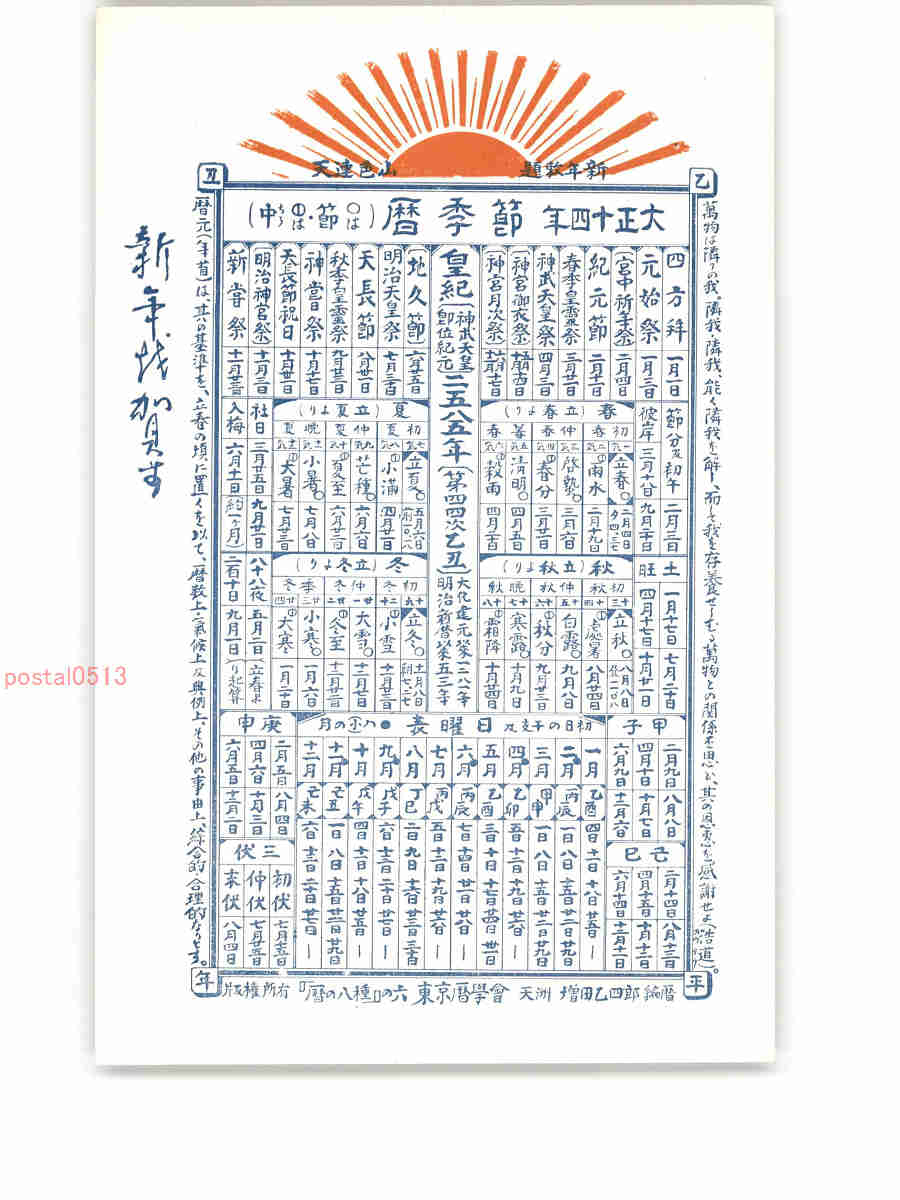 新年歌題 山色連天
乙
丑
大正十四年 節季暦 (○は節・①は中)
四方拝 一月一日
元始祭 一月三日
(宮中祈年祭) 二月四日
紀元節 二月十一日
春季皇霊祭 三月廿一日
神武天皇祭 四月三日
(神宮御衣祭)
(神宮月次祭)
皇紀(神武天皇即位紀元)二五八五年(第四四次乙丑)
大化建元以来一二八一年
明治新暦以来五三年
(地久節) 六月廿五日
明治天皇祭 七月三十日
天長節 八月卅一日
秋季皇霊祭 九月廿三日
神嘗祭 十月十七日
天長節祝日 十月卅一日
(明治神宮祭) 十一月三日
新嘗祭 十一月廿三日
節分及初午 二月三日
彼岸 三月十八日 九月二十日
土旺 一月十七日 七月二十日 四月十七日 十月廿一日
春(立春より)
初春 仲春 晩春
立春○ 二月四日
雨水① 二月十九日
啓蟄○ 三月六日
春分① 三月廿一日
清明○ 四月五日
穀雨① 四月二十日
夏(立夏より)
初夏 仲夏 晩夏
立夏○ 五月六日
小満①
芒種○ 六月六日
夏至① 六月廿二日
小暑○ 七月八日
大暑① 七月廿三日
社日 三月廿五日 九月廿一日
入梅 六月十一日 (約一ヶ月)
秋(立秋より)
初秋 仲秋 晩秋
立秋○ 八月八日
処暑① 八月廿四日
白露○ 九月八日
秋分① 九月廿三日
寒露○ 十月九日
霜降① 十月廿四日
冬(立冬より)
初冬 仲冬 季冬
立冬○ 十一月八日
小雪① 十一月廿三日
大雪○ 十二月八日
冬至① 十二月廿二日
小寒○ 一月六日
大寒① 一月二十日
八十八夜 五月二日
二百十日 九月一日 (立春より起算)
甲子 二月九日 八月八日 四月十日 十月七日 六月九日 十二月六日
己巳 二月十四日 八月十三日 四月十五日 十月十二日 六月十四日 十二月十一日
初日の干支及日曜表 ●ハ小の月
一月 乙酉 四日 十一日 十八日 廿五日 ー
二月 丙辰 一日 八日 十五日 廿二日
三月 甲申 一日 八日 十五日 廿二日 廿九日
四月 乙卯 五日 十二日 十九日 廿六日 ー
五月 乙酉 三日 十日 十七日 廿四日 卅一日
六月 丙辰 七日 十四日 廿一日 廿八日 ー
七月 丙戌 五日 十二日 十九日 廿六日 ー
八月 丁巳 二日 九日 十六日 廿三日 三十日
九月 戊子 六日 十三日 二十日 廿七日 ー
十月 戊午 四日 十一日 十八日 廿五日 ー
十一月 己丑 一日 八日 十五日 廿二日 廿九日
十二月 己未 六日 十三日 二十日 廿七日 ー
庚申 二月五日 八月四日 四月六日 十月三日 六月五日 十二月二日
三伏
初伏 七月十五日
仲伏 七月廿五日
末伏 八月四日
萬物は隣りの我。隣我・隣我、能く隣我を解し、而して我を存養せしむる萬物との関係を思ひ、其の恩恵を感謝せよ(浩道)。
暦元(年首)は、其の基準を、立春の頃に置くを以て、暦数上・気候上及興例上、その他の事由上、綜合的合理的なりとす。
平
年
暦編 郎四乙田増 洲天 會學暦京東 六の『種八の暦』 有所權版
新年恭賀
postal0513